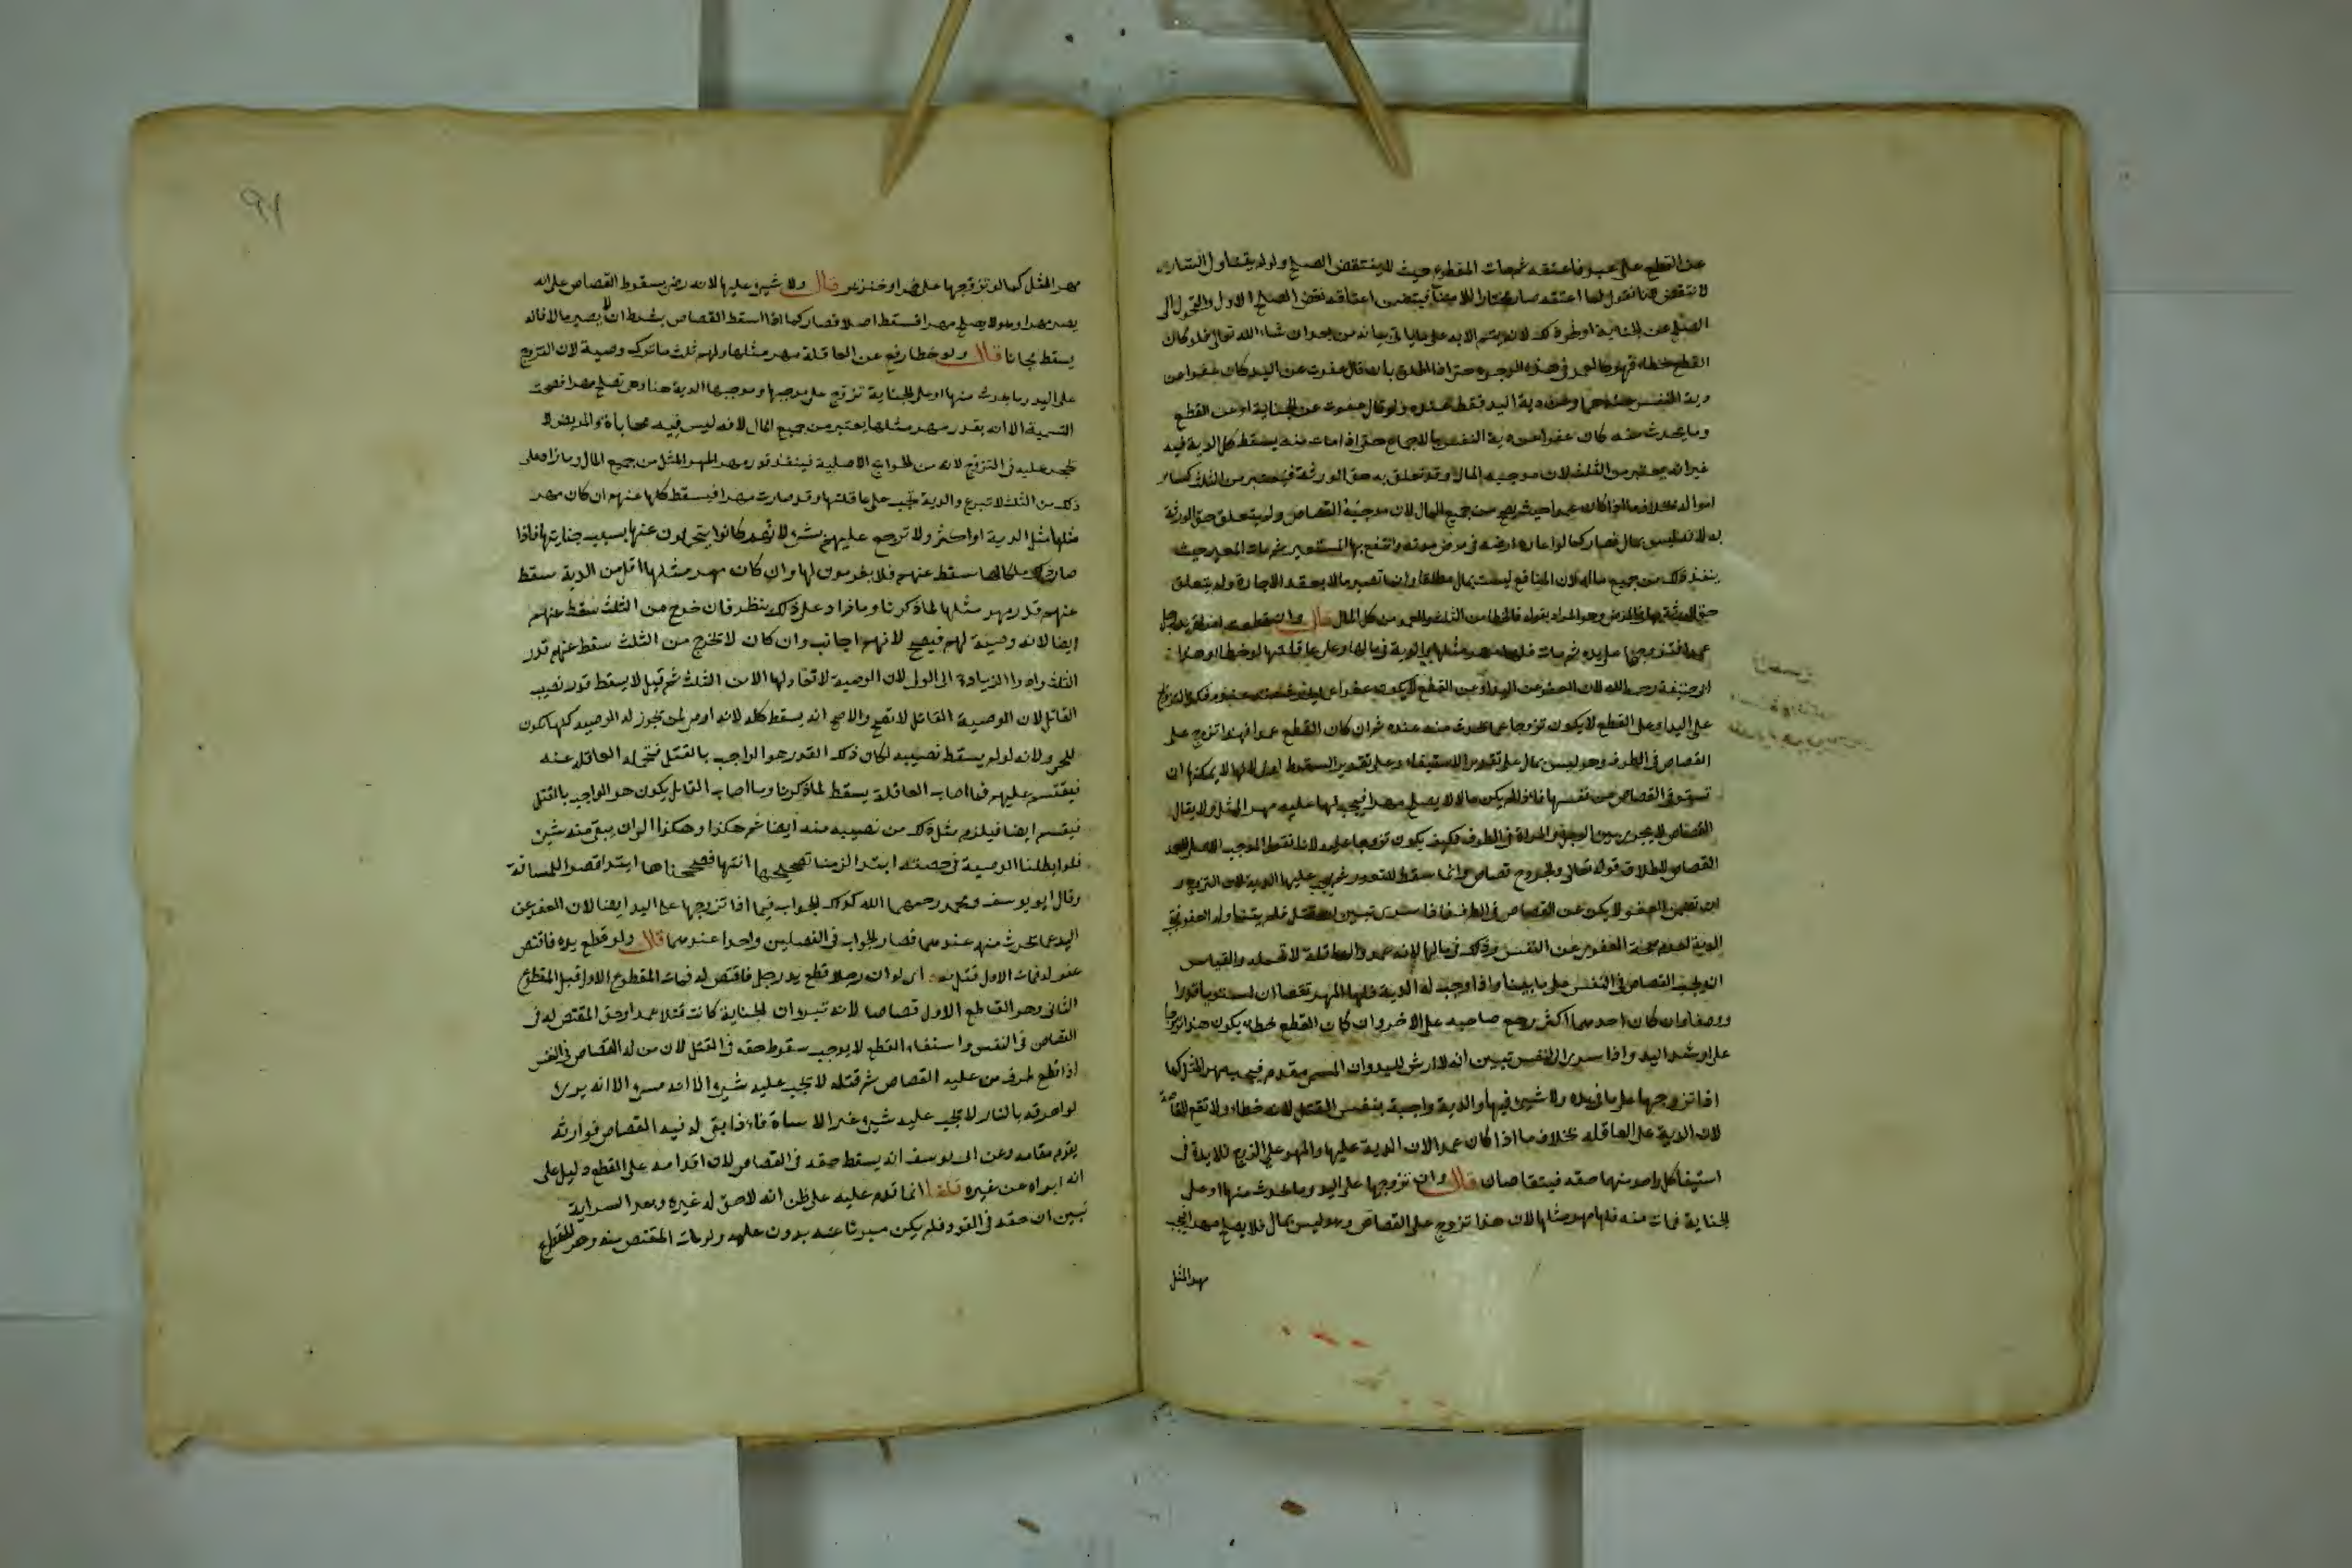 عن القطع على عبد فاعتقه ثم مات المقطوع حيث ينتقض الصلح ولو لم يتناول السراية
لا تنتقض لانا نقول لما اعتقه صار مختارا للامضاء فيتضمن اعتاقه نقض الصلح الاول والتحول الى
الصلح عن الجناية
القطع خطا فهو كالعمد في هذه الوجوه حتى اذا اطلق بان قال عفوت عن اليد كان عفوا عن
دية اليد فقط عنده ولو قال عفوت عن الجناية او عن القطع
وما يحدث منه كان عفوا عن دية النفس بالاجماع حتى اذا مات منه يسقط كل الدية فيه
غير انه يعتبر من الثلث لان موجبه المال وقد تعلق به حق الورثة فيعتبر من الثلث كسائر
امواله بخلاف ما اذا كان عمدا حيث يصح من جميع المال لان موجبه القصاص ولم يتعلق حق الورثة
به لانه ليس بمال فصار كما لو اعار ارضه في مرض موته وانتفع بها المستعير ثم مات المعير حيث
ينفذ ذلك من جميع ماله لان المنافع ليست بمال مطلقا وانما تصير مالا بعقد الاجارة ولم يتعلق
وهو المراد بقوله فالخطا من الثلث والعمد من كل المال قال وان قطعت امراة يد رجل
عمدا فتزوجها على يده ثم مات فلها مهر مثلها والدية في مالها وعلى عاقلتها لو خطا وهذا
على اليد او على القطع لا يكون تزوجا عما يحدث منه عنده ثم ان كان القطع عمدا فهذا تزوج على
القصاص في الطرف وهو ليس بمال على تقدير الاستيفاء وعلى تقدير السقوط اولى لانها لا يمكنها ان
تستوفي القصاص من نفسها فاذا لم يكن مالا لا يصلح مهرا فيجب لها عليه مهر المثل ولا يقال
القصاص لا يجري بين الرجل والمراة في الطرف فكيف يكون تزوجا عليه لانا نقول الموجب الاصلي للعمد
القصاص لاطلاق قوله تعالى والجروح قصاص وانما سقط للتعذر ثم يجب عليها الدية لان التزوج و
ان تضمن العفو لكن عن القصاص في الطرف فاذا سرى تبين انه قتل فلم يتناوله العفو فتجب
الدية لعدم صحة العفو عن النفس وذلك في مالها لانه عمد والعاقلة لا تحمله والقياس
ان يجب القصاص في النفس على ما بينا واذا وجب له الدية فلها المهر تقاصا ان استويا قدرا
ووصفا وان كان احدهما اكثر رجع صاحبه على الاخر وان كان القطع خطا يكون هذا تزوجا
على ارش اليد واذا سرى الى النفس تبين انه لا ارش لليد وان المسمى معدوم فيجب مهر المثل كما
اذا تزوجها على ما في يده ولا شيء فيها والدية واجبة بنفس القتل لانه خطاء ولا تقع المقاصة
لان الدية على العاقلة بخلاف ما اذا كان عمدا لان الدية عليها والمهر على الزوج
استيفا كل واحد منهما حقه فيتقاصان قال وان تزوجها على اليد وما يحدث منها او على
الجناية فمات منه فلها مهر مثلها لان هذا تزوج على القصاص وهو ليس بمال فلا يصلح مهرا فيجب
مهر المثل
٩١
مهر المثل كما لو تزوجها على خمر او خنزير قال ولا شيء عليها لانه رضي بسقوط القصاص على انه
يصير مهرا وهو لا يصلح مهرا فسقط اصلا فصار كما اذا اسقط القصاص بشرط ان يصير مالا فانه
يسقط مجانا قال ولو خطا رفع عن العاقلة مهر مثلها ولهم ثلث ما ترك وصية لان التزوج
على اليد وما يحدث منها او على الجناية تزوج على موجبها وموجبها الدية هنا وهي تصلح مهرا فصحت
التسمية الا انه بقدر مهر مثلها يعتبر من جميع المال لانه ليس فيه محاباة والمريض لا
يحجر عليه في التزوج لانه من الحوايج الاصلية فينفذ قدر مهر المثل من جميع المال وما زاد على
ذلك من الثلث لانه تبرع والدية تجب على عاقلتها وقد صارت مهرا فيسقط كلها عنهم ان كان مهر
مثلها مثل الدية او اكثر ولا ترجع عليهم بشيء لانهم كانوا يتحملون عنها بسبب جنايتها فاذا
صار ذلك ملكا لها سقط عنهم فلا يغرمون لها وان كان مهر مثلها اقل من الدية سقط
عنهم قدر مهر مثلها لما ذكرنا وما زاد على ذلك ينظر فان خرج من الثلث سقط عنهم
ايضا لانه وصية لهم فيصح لانهم اجانب وان كان لا تخرج من الثلث سقط عنهم قدر
الثلث وادوا الزيادة الى الولي لان الوصية لا نفاذ لها الا من الثلث ثم قيل لا يسقط قدر نصيب
القاتل لان الوصية للقاتل لا تصح والاصح انه يسقط كله لانه اوصى لمن تجوز له الوصية
ولانه لو لم يسقط نصيبه لكان ذلك القدر هو الواجب بالقتل فتحمله العاقلة عنه
فيقسم عليهم فما اصاب العاقلة يسقط لما ذكرنا وما اصاب القاتل يكون هو الواجب بالقتل
فيقسم ايضا فيلزم مثل ذلك من نصيبه منه ايضا ثم هكذا وهكذا الى ان يبقى منه شيء
فلو ابطلنا الوصية في حصته ابتداء لزمنا تصحيحها انتهاء فصححناها ابتداء قصرا للمسافة
وقال ابو يوسف ومحمد رحمهما الله كذلك الجواب فيما اذا تزوجها على اليد ايضا لان العفو عن
اليد عما يحدث منه عندهما فصار الجواب في الفصلين واحدا عندهما قال ولو قطع يده فاقتص
له فمات الاول قتل به اي لو ان رجلا قطع يد رجل فاقتص له فمات المقطوع الاول قتل المقطوع
الثاني وهو القاطع الاول قصاصا لانه تبين ان الجناية كانت قتلا عمدا وحق المقتص له في
القصاص في النفس واستيفاء القطع لا يوجب سقوط حقه في القتل لان من له القصاص في النفس
اذا قطع طرف من عليه القصاص ثم قتله لا يجب عليه شيء الا انه مسيء الا انه يرى
لو احرقه بالنار لا يجب عليه شيء غير الاساة فاذا بقي له فيه القصاص فوارثه
يقوم مقامه وعن ابي يوسف انه يسقط حقه في القصاص لان اقدامه على القطع دليل على
انه ابراه عن غيره قلنا انما قدم عليه على ظن انه لا حق له غيره وبعد السراية
تبين ان حقه في القود فلم يكن مبرئا عنه بدون علمه ولو مات المقتص منه وهو المقطوع